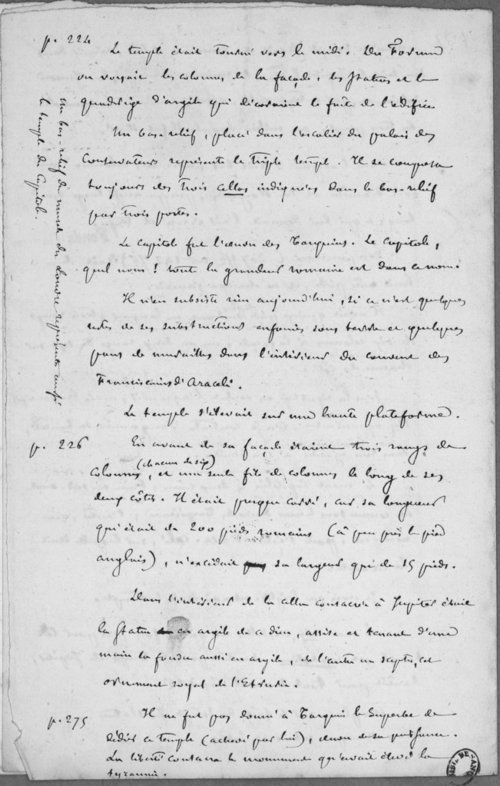 p. 224
Le temple était tourné vers le midi. Du Forum
on voyait les colonnes de la façade, les statues et le
quadrige d'argile qui décoraient le faîte de l'édifice.
Un bas-relief du musée du Louvre représente aussi
le temple du Capitole.
Un bas-relief, placé dans l'escalier du palais des
Conservateurs représente le triple temple. Il se composa
toujours des trois cellas indiquées dans le bas-relief
par trois portes.
Le Capitole fut l'œuvre des Tarquins. Le Capitole,
quel nom ! toute la grandeur romaine est dans ce nom.
Il n'en subsiste rien aujourd'hui, si ce n'est quelques
restes de ses substructions enfouies sous terre et quelques
pans de murailles dans l'intérieur du couvent des
Franciscains d'Araceli.
Le temple s'élevait sur une haute plateforme.
p. 226
En avant de sa façade étaient trois rangs de
colonnes (chacun de six), et une seule file de colonnes le long de ses
deux côtés. Il était presque carré, car sa longueur
qui était de 200 pieds romains (à peu près le pied
anglais), n'excédait sa largeur que de 15 pieds.
Dans l'intérieur de la cella consacrée à Jupiter était
la statue en argile de ce dieu, assise et tenant d'une
main la foudre aussi en argile, de l'autre un sceptre, cet
ornement royal de l'Etrurie.
p. 275
Il ne fut pas donné à Tarquin le Superbe de
dédier ce temple (achevé par lui), œuvre de sa puissance.
La liberté consacra le monument qu'avait élevé la
tyrannie.